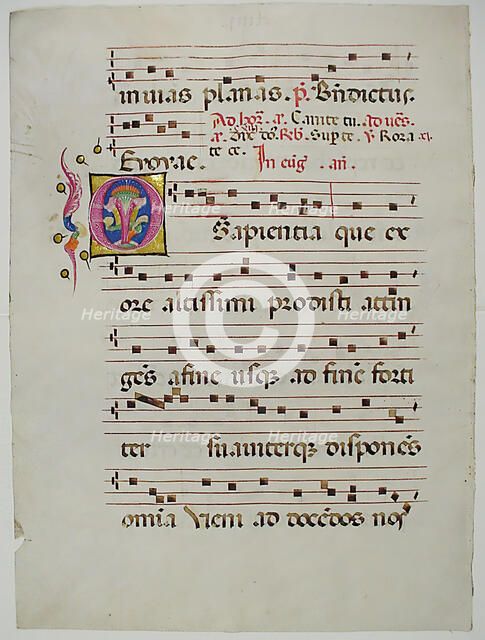 in vias planas. p̄. Bn̄dictus.
Ad hoʒ. a. Canite tu. Ad ues̄.
Euouae.
te ce. In euḡ. an̄.
O Sapientia que ex
ore altissimi prodisti attin
gēs a fine usqȝ ad finē forti
ter suauiterqȝ disponēs
omīa veni ad docēdos nos
Heritage Heritage
Heritage Heritage
Heritage Heritage